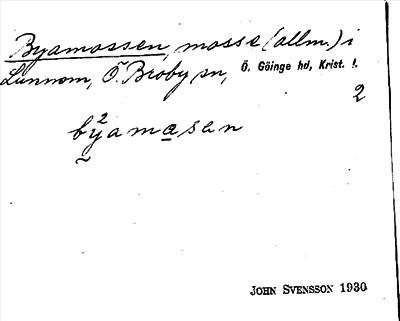 Byamossen, mosse (allm.) i
Lunnom, Ö. Broby sn, Ö. Göinge hd, Krist. l.
2
by²amåsan
JOHN SVENSSON 1930